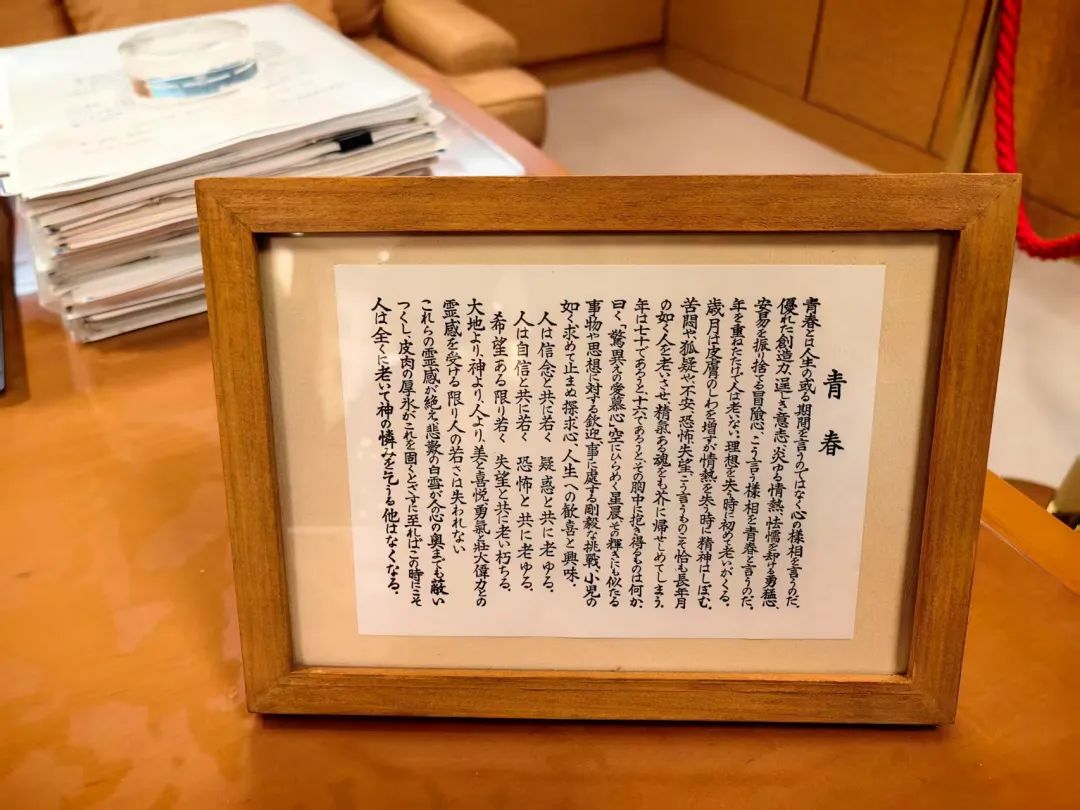 青春
青春とは人生の或る期間を言うのではなく心の様相を言うのだ。
優れた創造力、逞しき意志、炎ゆる情熱、怯懦を却ける勇猛心、
安易を振り捨てる冒険心、こう言う様相を青春と言うのだ。
年を重ねただけで人は老いない。理想を失う時に初めて老いがくる。
歳月は皮膚のしわを増すが情熱を失う時に精神はしぼむ。
苦悶や、狐疑や、不安、恐怖、失望、こう言うものこそ恰も長年月
の如く人を老いさせ、精気ある魂をも芥に帰せしめてしまう。
年は七十であろうと十六であろうと、その胸中に抱き得るものは何か。
曰く、「驚異えの愛慕心」空にひらめく星晨、その輝きにも似たる
事物や思想に対する欽迎、事に處する剛毅な挑戦、小児の
如く求めて止まぬ探求心、人生への歓喜と興味。
人は信念と共に若く 疑惑と共に老ゆる、
人は自信と共に若く 恐怖と共に老ゆる、
希望ある限り若く 失望と共に老い朽ちる。
大地より、神より、人より、美と喜悦、勇氣と壮大、偉力との
霊感を受ける限り人の若さは失われない
これらの霊感が絶え、悲歎の白雪が人の心の奥までも蔽い
つくし、皮肉の厚氷がこれを固くとざすに至ればこの時にこそ
人は全くに老いて神の憐みを乞うる他はなくなる。